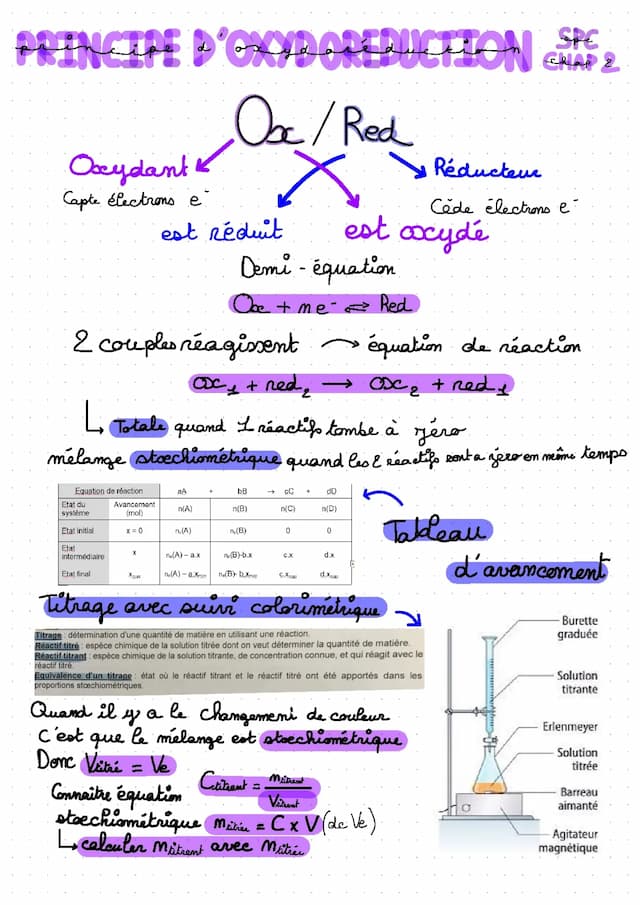 PRINCIPE D'OXYDORÉDUCTION
principe d'oxydoréduction
SPC
CHAP 2
Ox / Red
Oxydant
Réducteur
Capte électrons e⁻
Cède électrons e⁻
est réduit
est oxydé
Demi-équation
Ox + n e⁻ ⇌ Red
2 couples réagissent → équation de réaction
ox₁ + red₂ → ox₂ + red₁
Totale quand 1 réactifs tombe à zéro
mélange stœchiométrique quand les 2 réactifs sont a zero en même temps
Equation de réaction aA + bB → cC + dD
Etat du système Avancement (mol) n(A) n(B) n(C) n(D)
Etat initial x = 0 n₀(A) n₀(B) 0 0
Etat intermédiaire x n₀(A) – a.x n₀(B)-b.x c.x d.x
Etat final xₘₐₓ n₀(A) – a.xₘₐₓ n₀(B)- b.xₘₐₓ c.xₘₐₓ d.xₘₐₓ
Tableau
d'avancement
Titrage avec suivi colorimétrique
Titrage : détermination d'une quantité de matière en utilisant une réaction.
Réactif titré : espèce chimique de la solution titrée dont on veut déterminer la quantité de matière.
Réactif titrant : espèce chimique de la solution titrante, de concentration connue, et qui réagit avec le
réactif titré.
Equivalence d'un titrage : état où le réactif titrant et le réactif titré ont été apportés dans les
proportions stœchiométriques.
Burette
graduée
Solution
titrante
Erlenmeyer
Solution
titrée
Barreau
aimanté
Agitateur
magnétique
Quand il y a le changement de couleur
C'est que le mélange est stoechiométrique
Donc Vtitré = Ve
Connaitre équation
Ctitrant = ntitrant / Vtitrant
stœchiométrique ntitrée = C x V (de Ve)
calculer ntitrent avec ntitrée